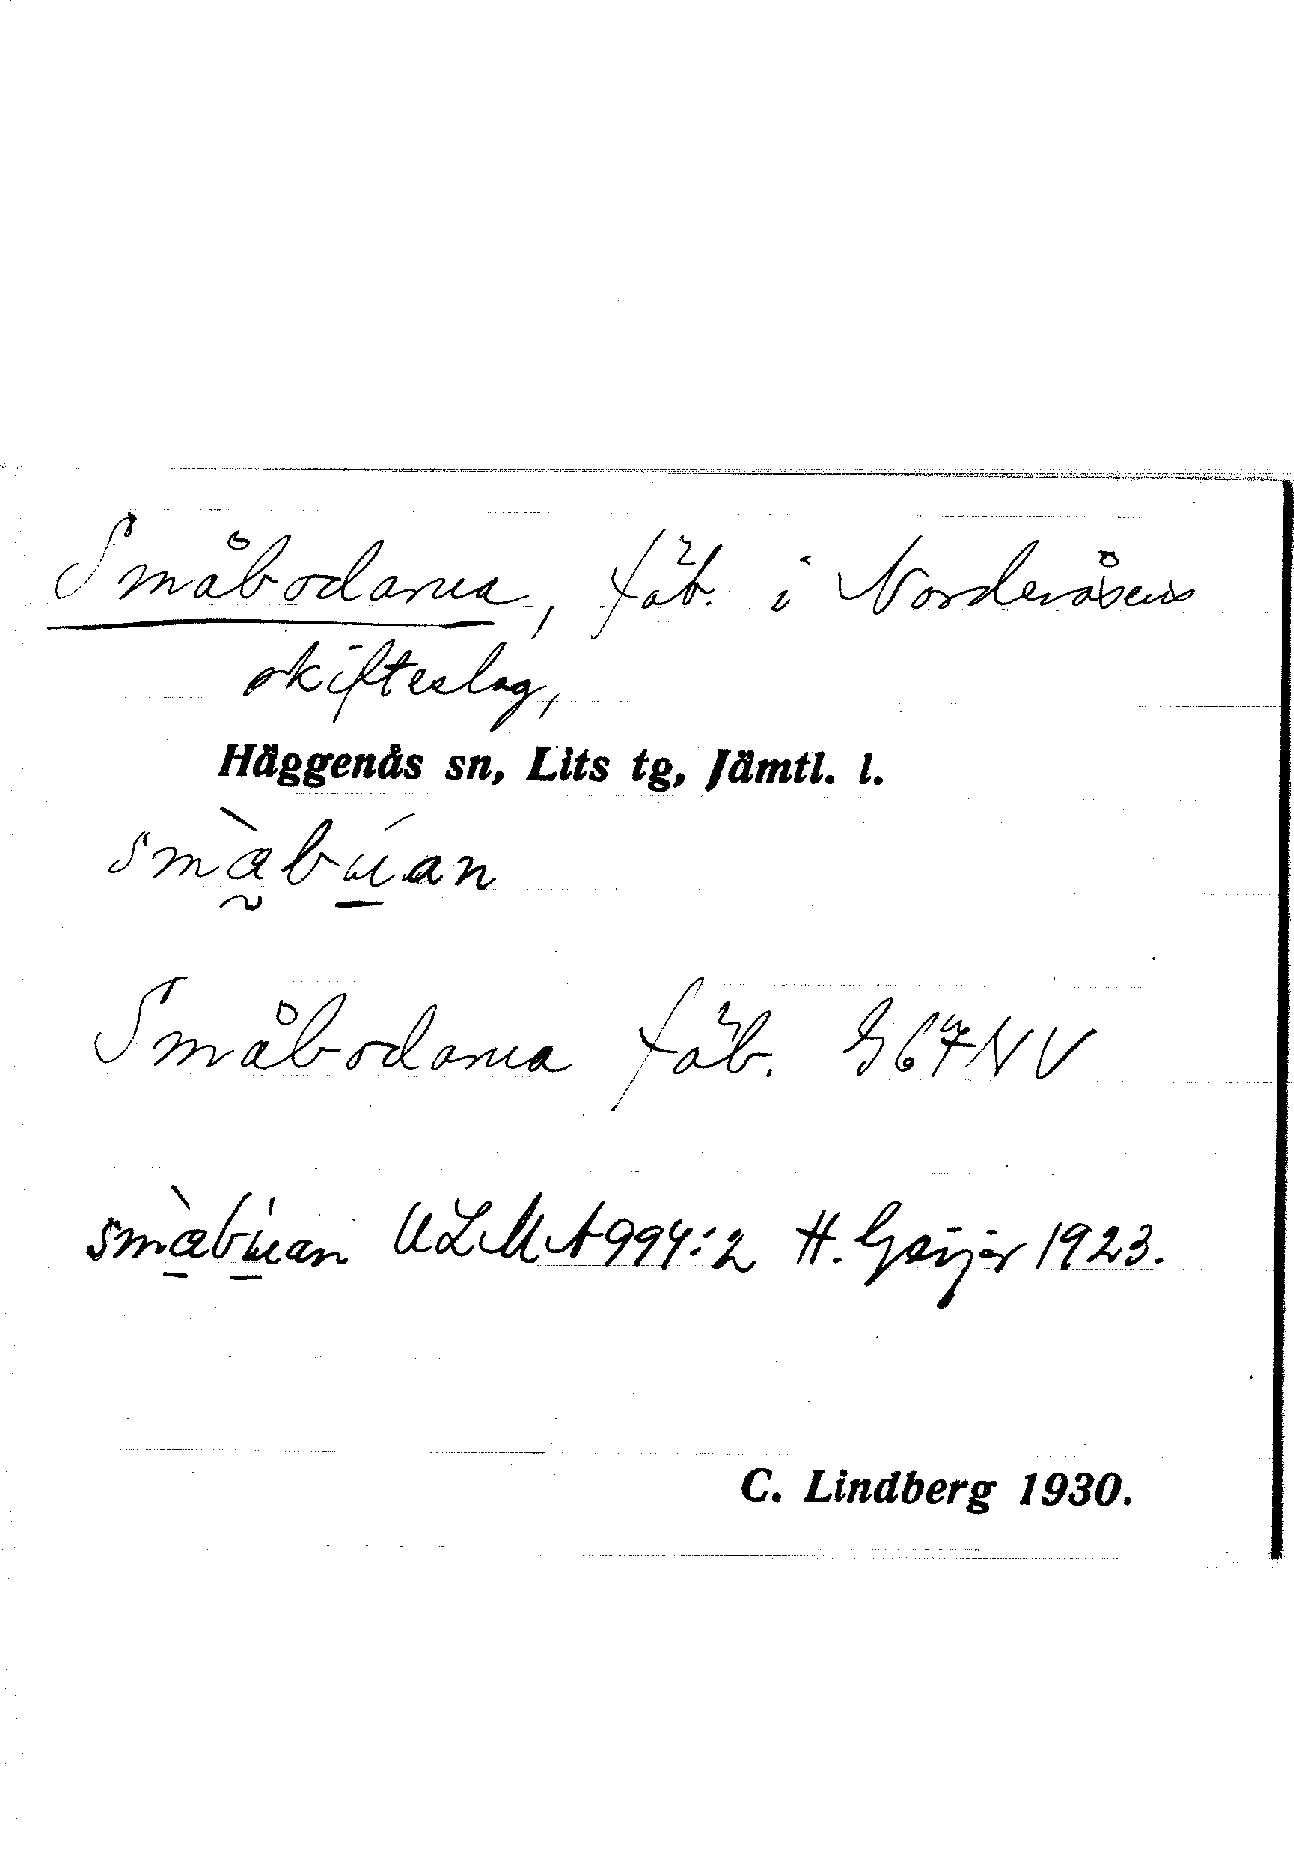 Småbodarna, fäb. i Norderåsens
skifteslag,
Häggenås sn, Lits tg, Jämtl. l.
smàbúan
Småbodarna fäb. G67NV
smàbúan ULMA 994:2 H. Geijer 1923.
C. Lindberg 1930.